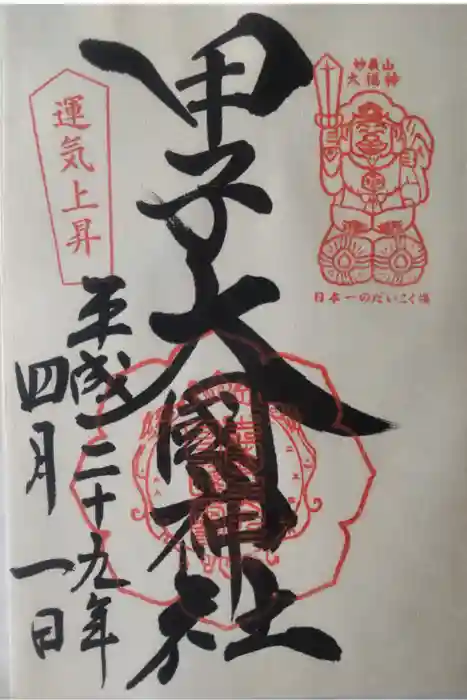 妙義山
大福神
日本一のだいこく様
甲子大國神社
運気上昇
平成二十九年
四月一日